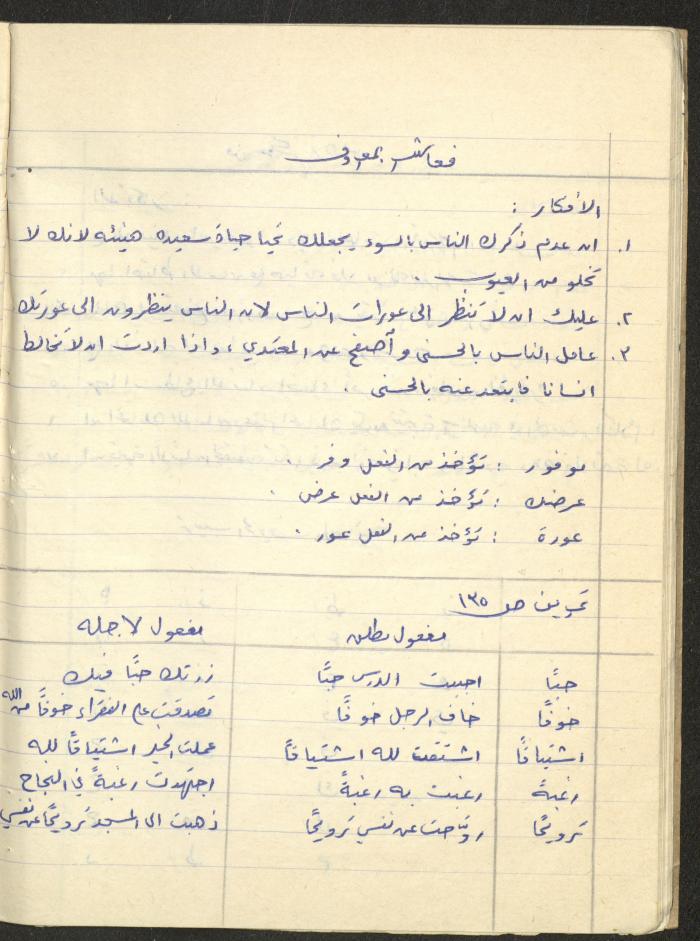 فعاشر بمعروف
الأفكار :
١. ان عدم ذكرك الناس بالسوء يجعلك تحيا حياة سعيده هنيئه لانك لا
تخلو من العيوب
٢. عليك ان لا تنظر الى عورات الناس لان الناس ينظرون الى عورتك
٣. عامل الناس بالحسنى وأصفح عن المعتدي ، واذا اردت ان لا تخالط
انسانا فابتعد عنه بالحسنى .
موفور : تؤخذ من الفعل وفر .
عرضك : تؤخذ من الفعل عرض .
عورة : تؤخذ من الفعل عور .
تمرين ص ١٣٥
مفعول مطلق مفعول لاجله
حبًا احببت الدرس حبًا زرتك حبًا فيك
خوفًا خاف الرجل خوفًا تصدقت على الفقراء خوفًا من الله
اشتياقًا اشتقت لله اشتياقًا عملت الخير اشتياقًا لله
رغبةً رغبت به رغبةً اجتهدت رغبةً في النجاح
ترويحًا روّحت عن نفسي ترويحًا ذهبت الى المسجد ترويحًا عن نفسي